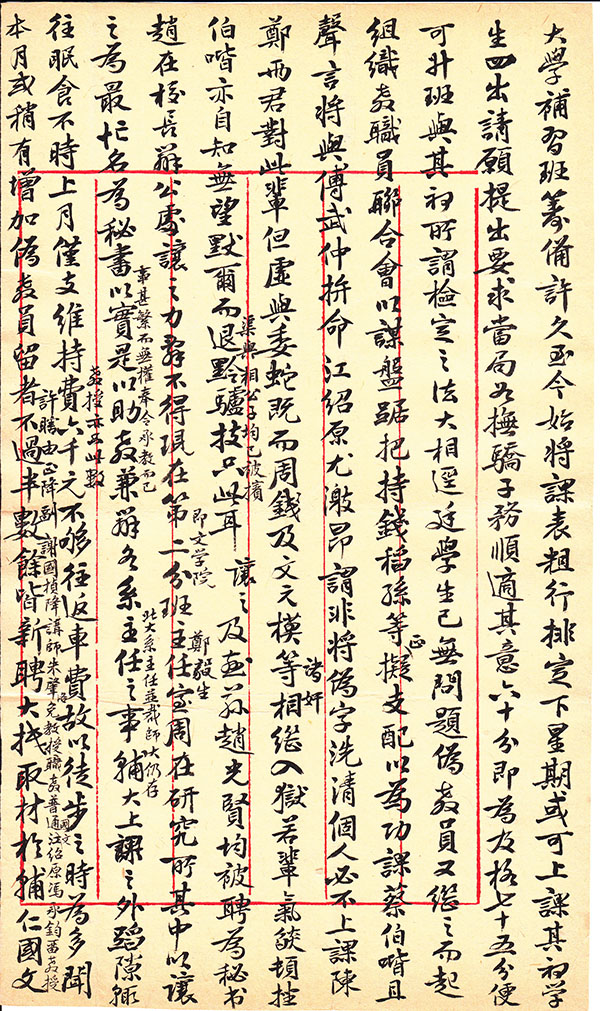 大學補習班籌備許久至今始將課表粗行排定下星期或可上課其初学
生四出請願提出要求當局如撫驕子務順適其意六十分即為及格七十五分便
可升班與其初所謂檢定之法大相逕廷學生已無問題偽教員又繼之而起
組織教職員聯合會以謀盤踞把持錢稻孫等正擬支配以為功課蔡伯喈且
聲言將與傅武仲拚命江紹原尤激昂謂非將偽字洗清個人必不上課陳
鄭兩君對此輩但虛與委蛇既而周錢及文元模等諸奸相繼入獄若輩氣燄頓挫
伯喈亦自知無望默爾而退黔驢技只此耳
渠與相公子均已被擯
讓之及封孫趙光賢均被聘為秘书
趙在校長辦公處讓之力辞不得現在第二分班即文学院主任室周在研究所其中以讓
事甚繁而無權奉令承教而已
鄭毅生
之為最忙名為秘書以實是以助教兼辦各系主任之事輔大上課之外蹈隙輒
北大系主任並裁師大仍存
往眠食不時上月僅支維持費六千元不够往返車費故以徒步之時為多聞
教授亦只此數
本月或稍有增加偽教員留者不過半數餘皆新聘大抵取材於輔仁國文
許勝由正降副謝國楨降講師朱肇洛免教授聽教普通国文江紹原馮承鈞曾教授